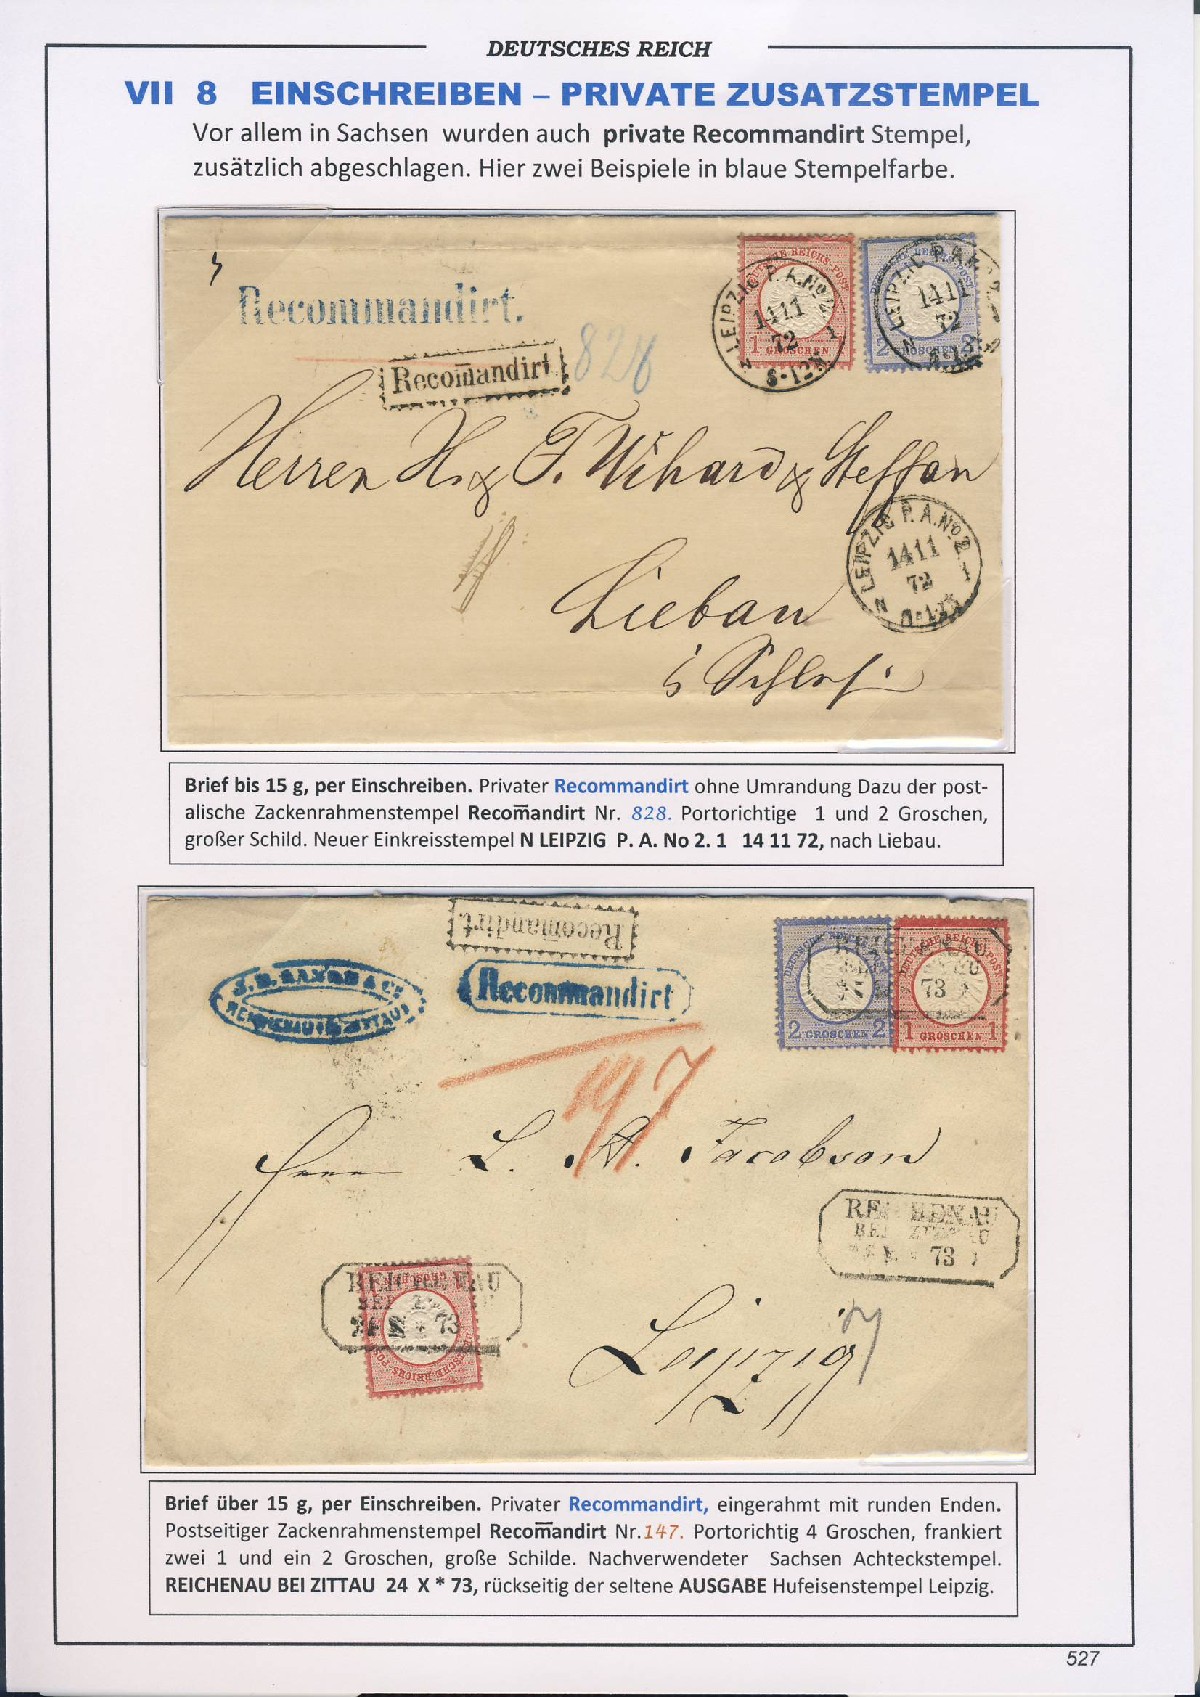 DEUTSCHES REICH
VII 8 EINSCHREIBEN – PRIVATE ZUSATZSTEMPEL
Vor allem in Sachsen wurden auch private Recommandirt Stempel,
zusätzlich abgeschlagen. Hier zwei Beispiele in blaue Stempelfarbe.
Recommandirt.
Recom̅andirt
828
1 GROSCHEN 1
2 GROSCHEN 2
N LEIPZIG P. A. No 2. 1
14 11
72
8-12V
Herren H. & F. Wihard & Steffan
N LEIPZIG P. A. No 2. 1
14 11
72
Liebau
i Schles.
Brief bis 15 g, per Einschreiben. Privater Recommandirt ohne Umrandung Dazu der post-
alische Zackenrahmenstempel Recom̅andirt Nr. 828. Portorichtige 1 und 2 Groschen,
großer Schild. Neuer Einkreisstempel N LEIPZIG P. A. No 2. 1 14 11 72, nach Liebau.
Recom̅andirt.
Recommandirt
REICHENAU ZITTAU
2 GROSCHEN 2
1 GROSCHEN 1
73
147
Herrn L. A. Jacobson
REICHENAU
BEI ZITTAU
73
REICHENAU
BEI
73
Leipzig
Brief über 15 g, per Einschreiben. Privater Recommandirt, eingerahmt mit runden Enden.
Postseitiger Zackenrahmenstempel Recom̅andirt Nr. 147. Portorichtig 4 Groschen, frankiert
zwei 1 und ein 2 Groschen, große Schilde. Nachverwendeter Sachsen Achteckstempel.
REICHENAU BEI ZITTAU 24 X * 73, rückseitig der seltene AUSGABE Hufeisenstempel Leipzig.
527